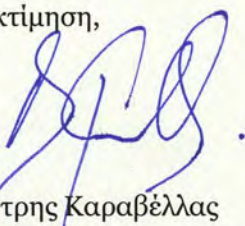 κτίμηση,
τρης Καραβέλλας